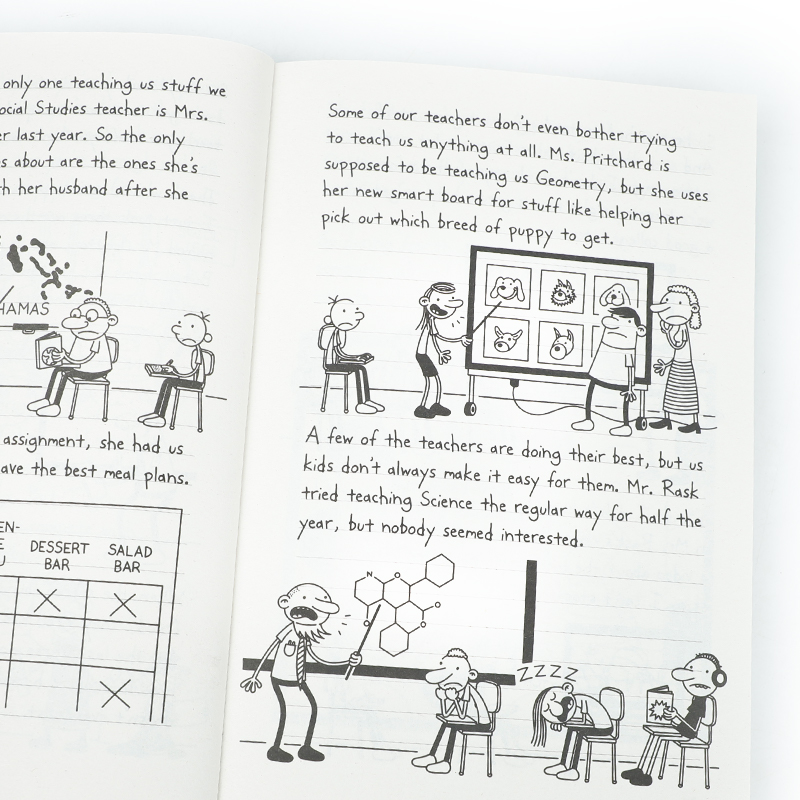 only one teaching us stuff we
ocial Studies teacher is Mrs.
er last year. So the only
s about are the ones she's
h her husband after she
HAMAS
assignment, she had us
ave the best meal plans.
EN-
E
U
DESSERT
BAR
SALAD
BAR
Some of our teachers don't even bother trying
to teach us anything at all. Ms. Pritchard is
supposed to be teaching us Geometry, but she uses
her new smart board for stuff like helping her
pick out which breed of puppy to get.
A few of the teachers are doing their best, but us
kids don't always make it easy for them. Mr. Rask
tried teaching Science the regular way for half the
year, but nobody seemed interested.
N
O
O
O
O
ZZZZ